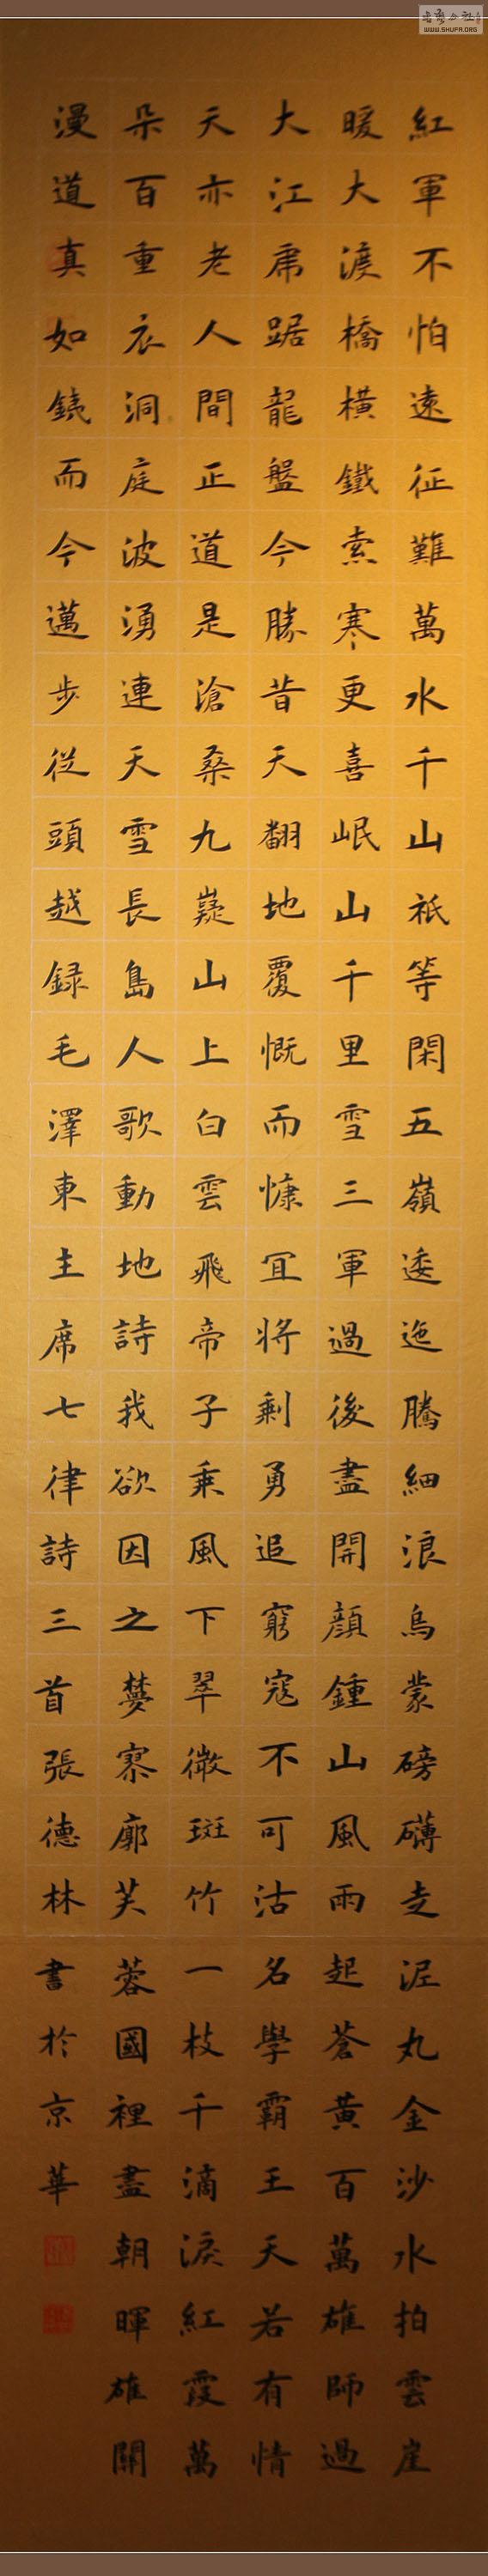 紅軍不怕遠征難萬水千山祇等閑五嶺逶迤騰細浪烏蒙磅礴走泥丸金沙水拍雲崖
暖大渡橋橫鐵索寒更喜岷山千里雪三軍過後盡開顏鍾山風雨起蒼黃百萬雄師過
大江虎踞龍盤今勝昔天翻地覆慨而慷宜將剩勇追窮寇不可沽名學霸王天若有情
天亦老人間正道是滄桑九嶷山上白雲飛帝子乘風下翠微斑竹一枝千滴淚紅霞萬
朵百重衣洞庭波湧連天雪長島人歌動地詩我欲因之夢寥廓芙蓉國裡盡朝暉雄關
漫道真如銕而今邁步從頭越録毛澤東主席七律詩三首張德林書於京華
WWW.SHUFA.ORG